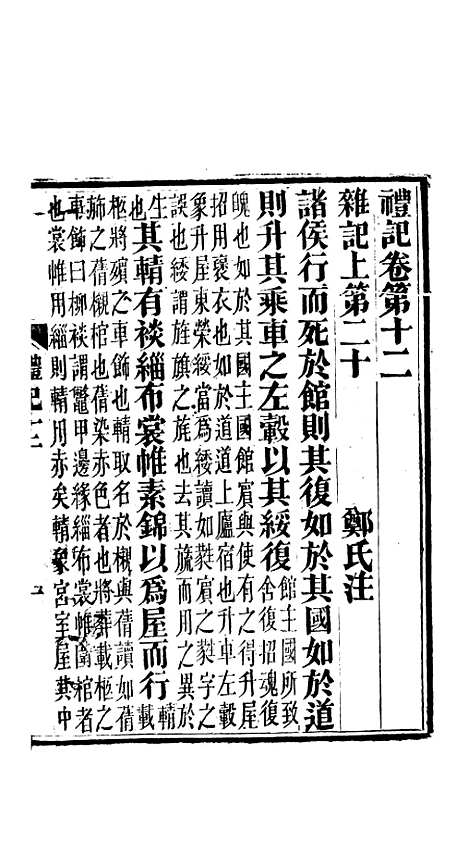 禮記卷第十二
雜記上第二十
鄭氏注
諸侯行而死於館則其復如於其國如於道
則升其乘車之左轂以其綏復
館主國所致
舍復招魂復
魄也如於其國主國館賓與使有之得升屋
招用褒衣也如於道道上廬宿也升車左轂
象升屋東榮綏當爲緌讀如蕤賓之蕤字之
誤也緌謂旌旗之旄也去其旒而用之異於
生也
其輤有裧緇布裳帷素錦以爲屋而行
輤載
柩將殯之車飾也輤取名於櫬與蒨讀如蒨
斾之蒨櫬棺也蒨染赤色者也將葬載柩之
車飾曰柳裧謂鼈甲邊緣緇布裳帷圍棺者
也裳帷用緇則輤用赤矣輤象宮室屋其中
禮記十二